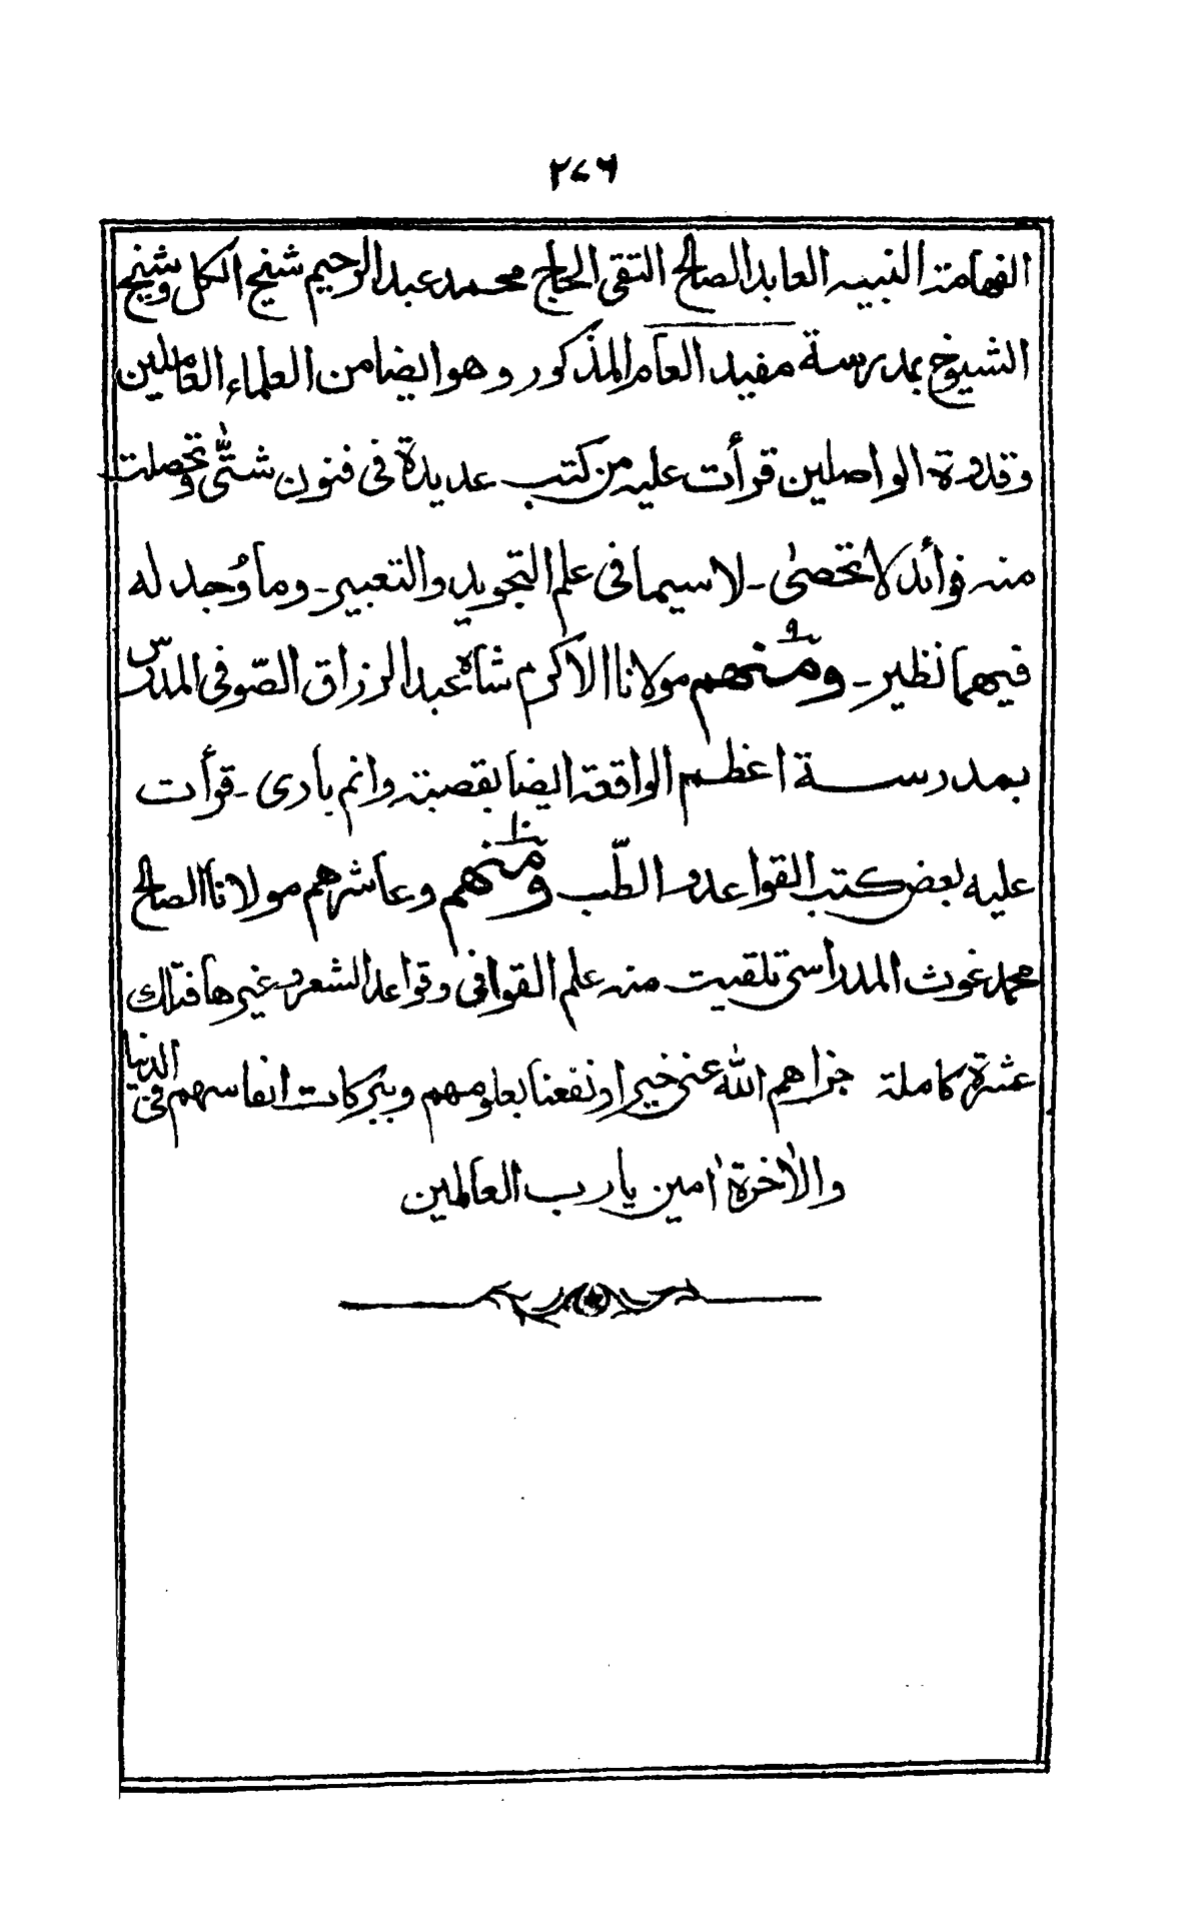 ٢٧٦
الفهامة النبيه العابد الصالح التقى الحاج محمد عبد الرحيم شيخ الكل وشيخ
الشيوخ بمدرسة مفيد العام المذكور وهو ايضا من العلماء العاملين
وقدوة الواصلين قرأت عليه من كتب عديدة فى فنون شتّى وتحصلت
منه فوائد لا تحصىٰ ـ لا سيما فى علم التجويد والتعبير ـ وما وُجد له
فيهما نظير ـ ومنهم مولانا الاكرم شاه عبد الرزاق الصّوفى المدرّس
بمدرسة اعظم الواقعة ايضا بقصبة وانم بارى ـ قرأت
عليه بعض كتب القواعد والطّب ومنهم وعاشرهم مولانا الصالح
محمد غوث المدراسى تلقيت منه علم القوافى وقواعد الشعر وغيرها فتلك
عشرة كاملة جزاهم الله عنى خيرا ونفعنا بعلومهم وببركات انفاسهم فى الدنيا
والاٰخرة اٰمين يا رب العالمين